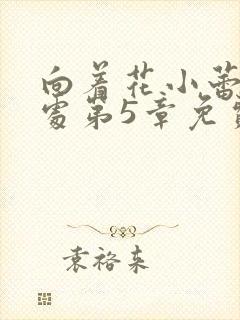 向着花小蕾
处第5章免
袁裕来